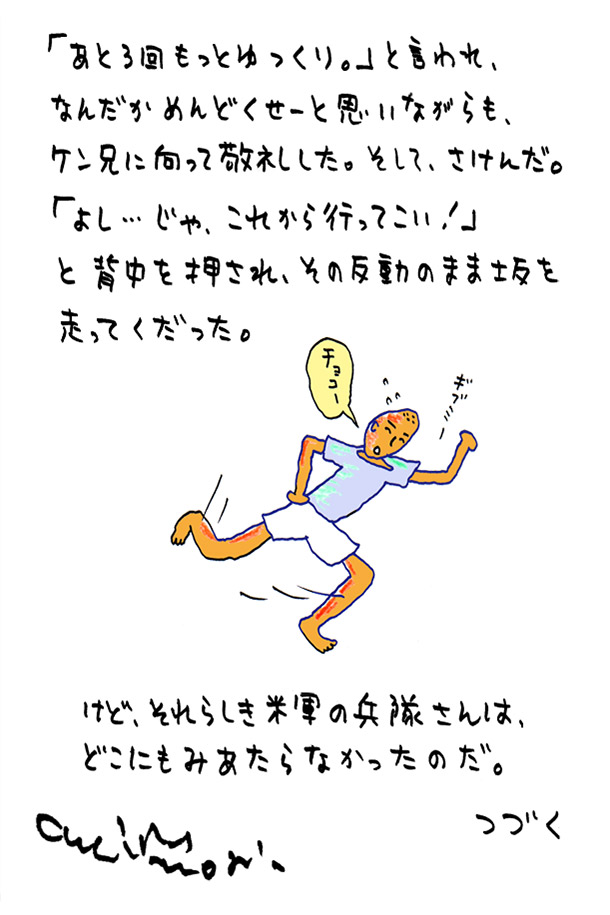 「あと3回もっとゆっくり。」と言われ、
なんだかめんどくせーと思いながらも、
ケン兄に向って敬礼しした。そして、さけんだ。
「よし…じゃ、これから行ってこい！」
と背中を押され、その反動のまま坂を
走ってくだった。
チョコー
ギブミー
けど、それらしき米軍の兵隊さんは、
どこにもみあたらなかったのだ。
つづく